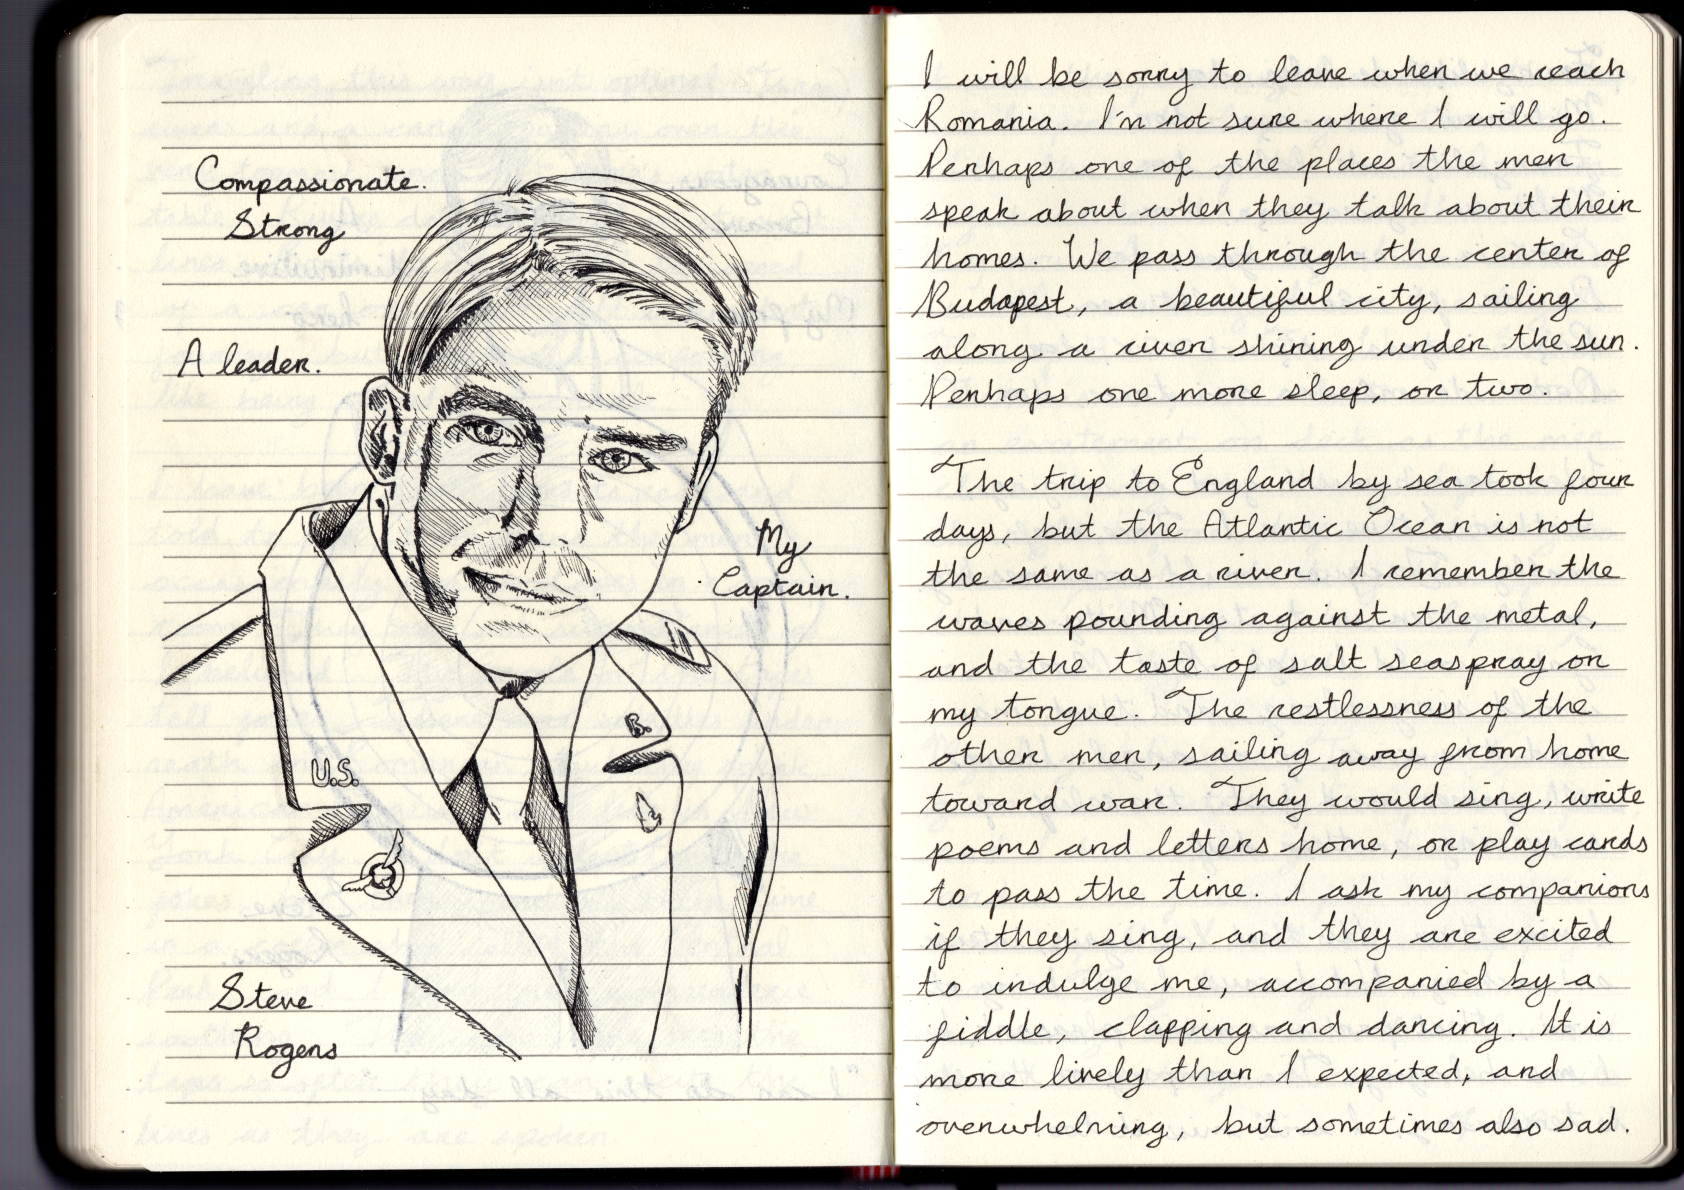 Compassionate.
Strong
A leader.
My
Captain.
B.
U.S.
Steve
Rogers
I will be sorry to leave when we reach
Romania. I'm not sure where I will go.
Perhaps one of the places the men
speak about when they talk about their
homes. We pass through the center of
Budapest, a beautiful city, sailing
along a river shining under the sun.
Perhaps one more sleep, or two.
The trip to England by sea took four
days, but the Atlantic Ocean is not
the same as a river. I remember the
waves pounding against the metal,
and the taste of salt seaspray on
my tongue. The restlessness of the
other men, sailing away from home
toward war. They would sing, write
poems and letters home, or play cards
to pass the time. I ask my companions
if they sing, and they are excited
to indulge me, accompanied by a
fiddle, clapping and dancing. It is
more lively than I expected, and
overwhelming, but sometimes also sad.